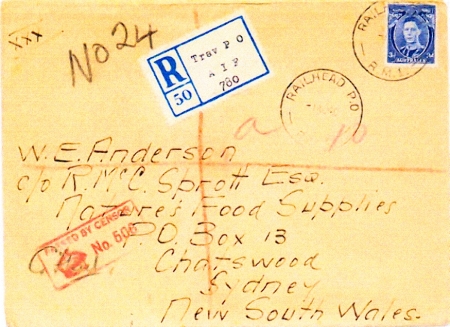 xxx
No 24
R
50
Trav P O
A I F
760
RAILHEAD P.O
R.M.
AUSTRALIA
RAILHEAD P.O
a
W. E. Anderson
c/o R. McC. Sprott Esq.
Nature's Food Supplies
P.O. Box 13
Chatswood
Sydney
New South Wales.
PASSED BY CENSOR
No. 506